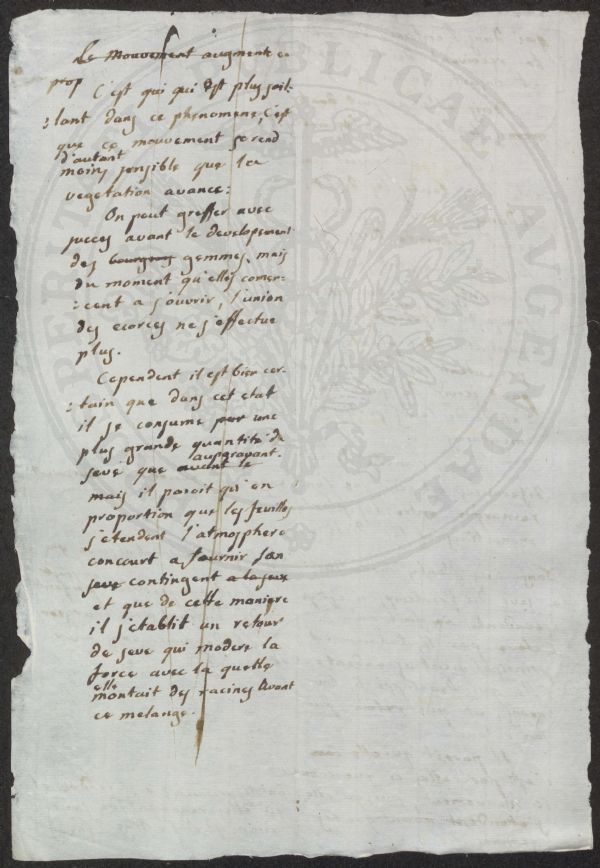 Le mouvement augmente e
prop C'est qui qui est plus sail-
:lant dans ce phenomene, c'est
que ce mouvement se rend
d'autant
moins sensible que la
vegetation avance:
On peut greffer avec
succes avant le developement
des bourgeons gemmes, mais
du moment qu'elles comen-
:cent a s'ouvrir, l'union
des ecorces ne s'effectue
plus.
Cependent il est bien cer-
:tain que dans cet etat
il se consume par une
plus grande quantité de
auparavant.
seve que avant le
mais il paroit qu'en
proportion que les feuilles
s'etendent l'atmosphere
concourt a fournir son
seve contingent a la seve
et que de cette maniere
il s'etablit un retour
de seve qui modere la
force avec la quelle
elle
montait des racines avant
ce melange.
REIPUBLICAE AUGENDAE